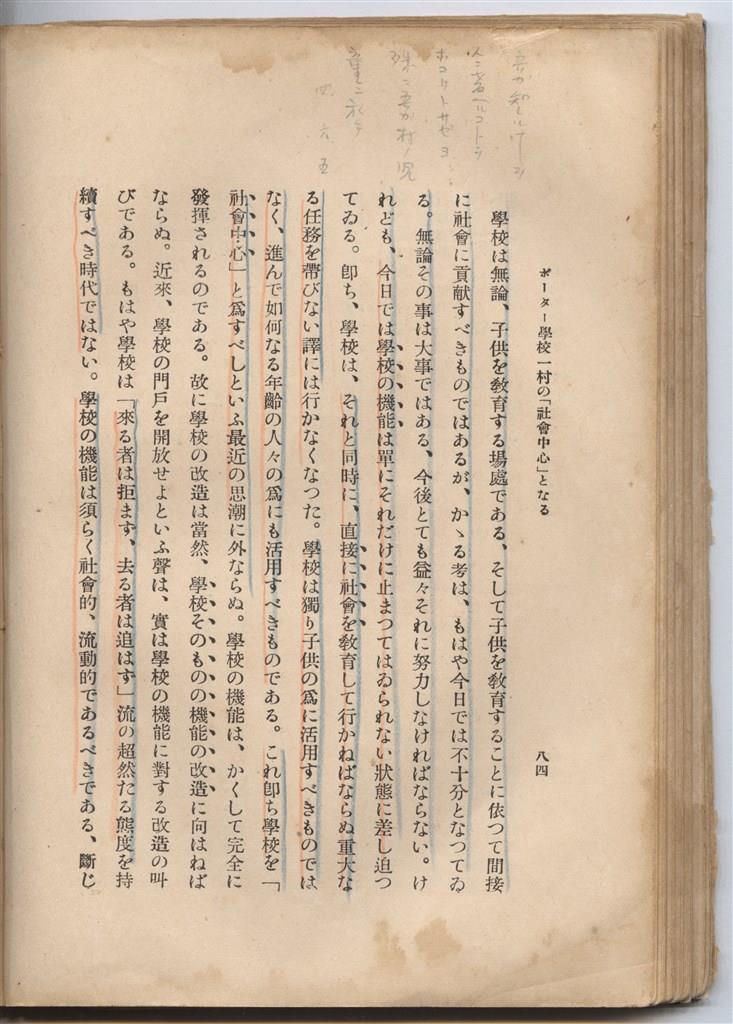 ポーター學校一村の「社會中心」となる
八四
學校は無論、子供を敎育する場處である、そして子供を敎育することに依つて間接
に社會に貢献すべきものではあるが、かゝる考は、もはや今日では不十分となつてゐ
る。無論その事は大事ではある、今後とても益々それに努力しなければならない。け
れども、今日では學校の機能は單にそれだけに止まつてはゐられない狀態に差し迫つ
てゐる。卽ち、學校は、それと同時に、直接に社會を敎育して行かねばならぬ重大な
る任務を帶びない譯には行かなくなつた。學校は獨り子供の爲に活用すべきものでは
なく、進んで如何なる年齡の人々の爲にも活用すべきものである。これ卽ち學校を「
社會中心」と爲すべしといふ最近の思潮に外ならぬ。學校の機能は、かくして完全に
發揮されるのである。故に學校の改造は當然、學校そのものの機能の改造に向はねば
ならぬ。近來、學校の門戶を開放せよといふ聲は、實は學校の機能に對する改造の叫
びである。もはや學校は「來る者は拒まず、去る者は追はず」流の超然たる態度を持
續すべき時代ではない。學校の機能は須らく社會的、流動的であるべきである、斷じ
四 六 五